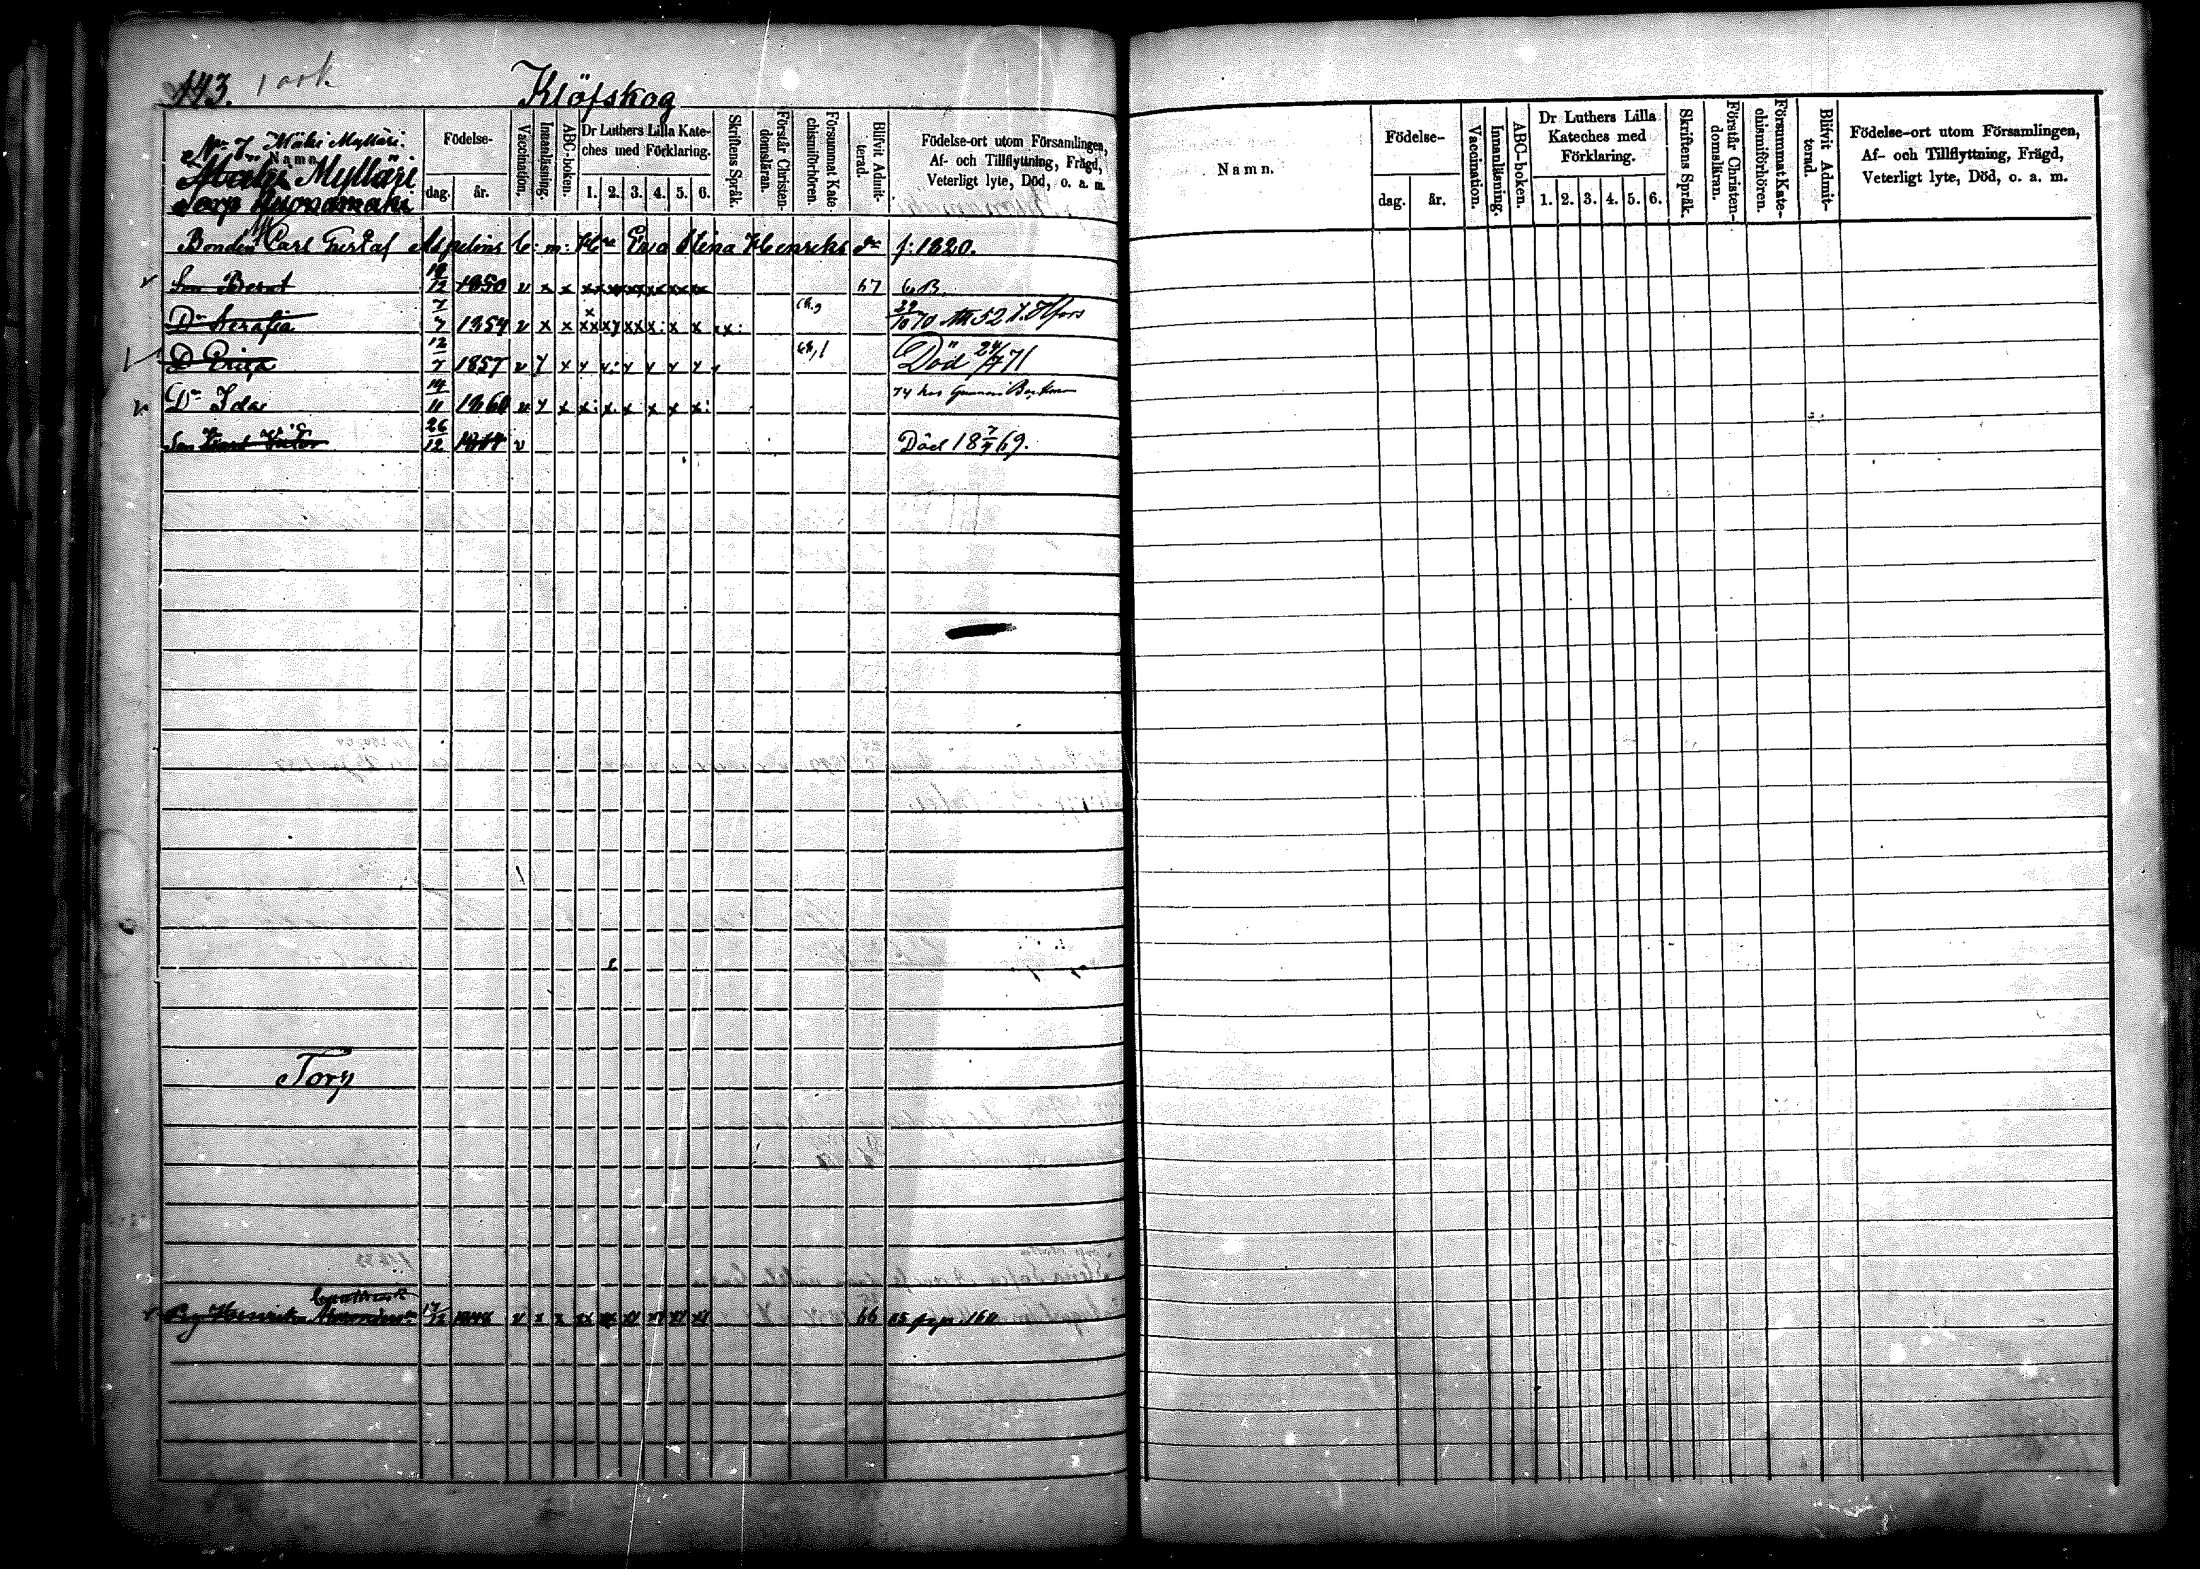 143.
Klöfskog
No 7 Mäki Mylläri.
Namn
Mäki Mylläri
Torp
Födelse-
dag. år.
Vaccination.
Innanläsning.
ABC-boken.
Dr Luthers Lilla Kate-
ches med Förklaring.
1. 2. 3. 4. 5. 6.
Skriftens Språk.
Förstår Christen-
domsläran.
Försummat Kate-
chismiförhören.
Blifvit Admit-
terad.
Födelse-ort utom Församlingen,
Af- och Tillflyttning, Frägd,
Veterligt lyte, Död, o. a. m.
Bonden Carl Gustaf Erica Stina Henriks dr f: 1820.
Son Bernt 1850 v x x x x x x x x 67
Dr Serafia 7/7 1854 v x x xx xx xx x x x 29/10 70 52 Hfors
D Erica 12/7 1857 v x x x x x x x x Död 24/7 71
Dr Ida 14/11 1860 v x x x x x x x x 74 hos
Son 26/12 v Död 18 69.
Torp
Pig Henrika 17/12 1848 v x x xx xx xx xx xx xx 66 pag. 160
Namn.
Födelse-
dag. år.
Vaccination.
Innanläsning.
ABC-boken.
Dr Luthers Lilla
Kateches med
Förklaring.
1. 2. 3. 4. 5. 6.
Skriftens Språk.
Förstår Christen-
domsläran.
Försummat Kate-
chismiförhören.
Blifvit Admit-
terad.
Födelse-ort utom Församlingen,
Af- och Tillflyttning, Frägd,
Veterligt lyte, Död, o. a. m.